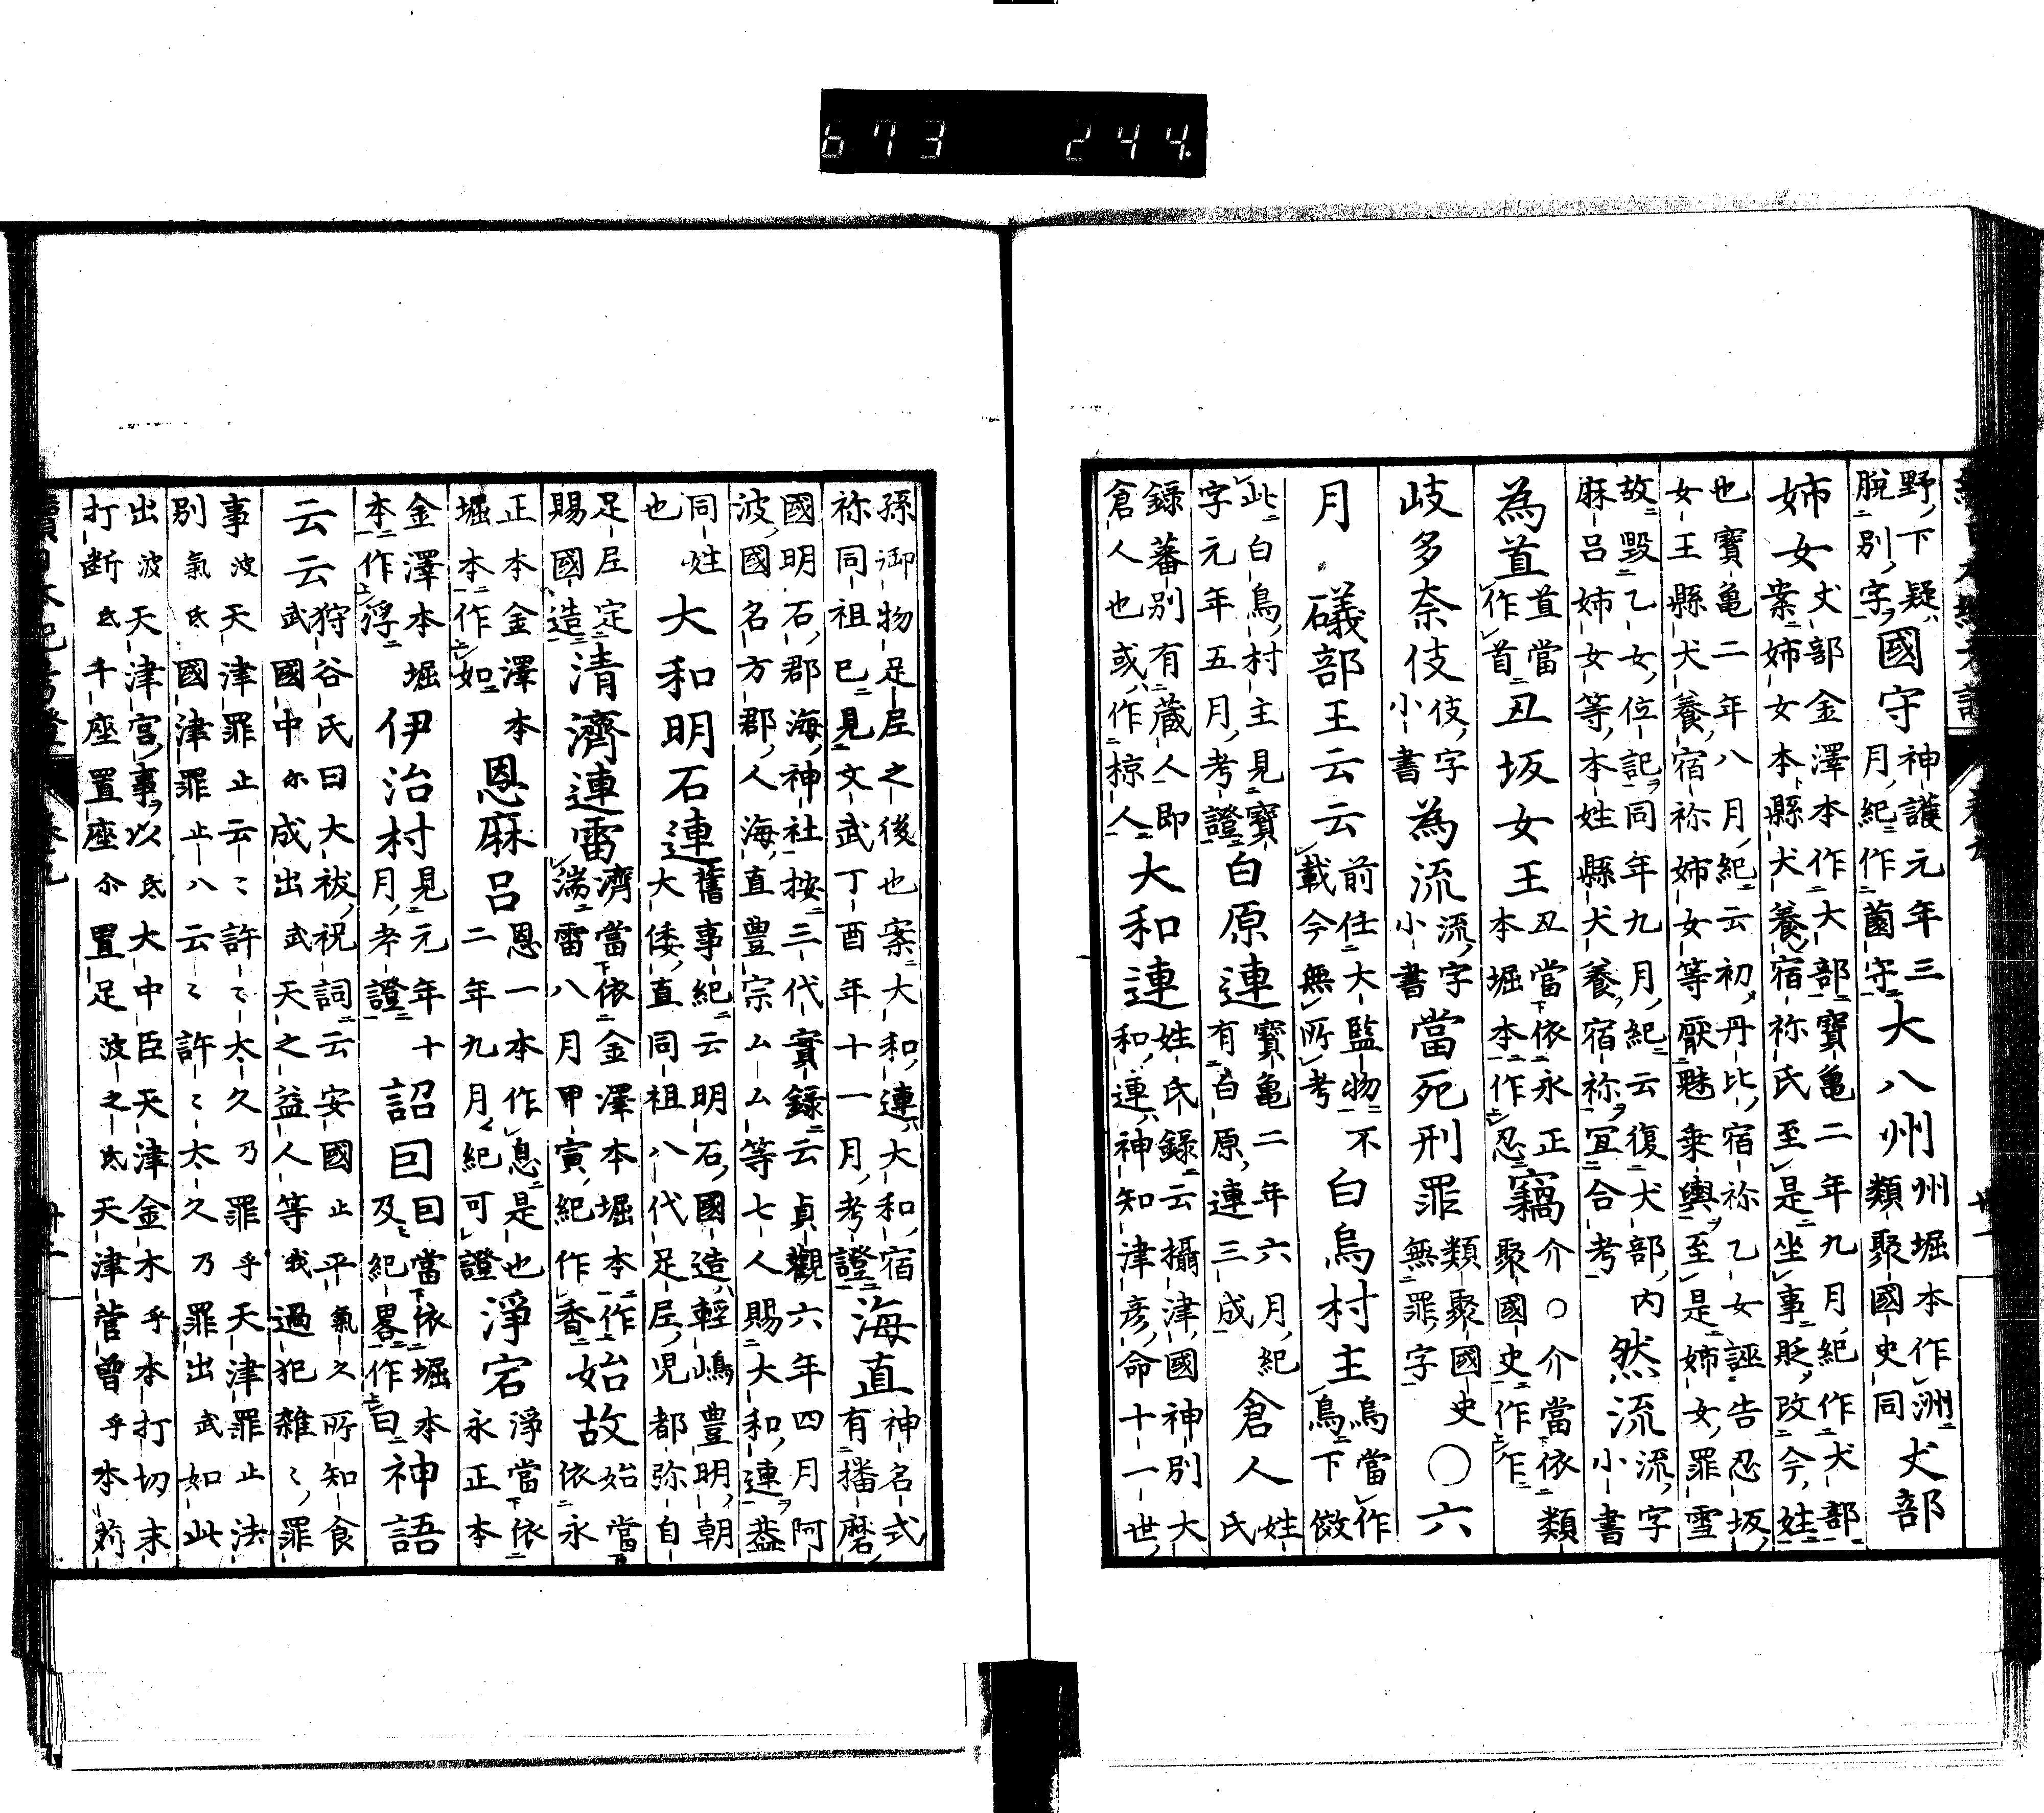 673 244
野下疑脱別字國守神護元年三月紀作菌守大八州州堀本作洲類聚國史同犬部
姉女犬部金澤本作大部寶亀二年九月紀作犬部案姉女本縣犬養宿祢氏至是坐事貶改今姓
也寶亀二年八月紀云初丹比宿祢乙女誣告忍坂女王縣犬養宿祢姉女等厭魅乗輿至是姉女罪雪
故毀乙女位記同年九月紀云復犬部内麻呂姉女等本姓縣犬養宿祢宜合考然流流字小書
為直直當作首丑坂女王丑當依永正本堀本作忍竊介〇介當依類聚國史作乍
岐多奈伎伎字小書為流流字小書當死刑罪類聚國史無罪字〇六
月礒部王云云前任大監物不載今無所考白烏村主烏當作鳥下倣
此白鳥村主見寶字元年五月考證白原連寶亀二年六月紀有白原連三成倉人姓氏
錄蕃別有蔵人即倉人也或作椋人大和連姓氏錄云攝津國神別大和連神知津彦命十一世
孫御物足尼之後也案大和連大和宿祢同祖已見文武丁酉年十一月考證海直神名式有播磨
國明石郡海神社按三代實錄云貞觀六年四月阿波國名方郡人海直豊宗ムム等七人賜大和連葢
同姓也大和明石連舊事紀云明石國造輕嶋豊明朝大倭直同祖八代足尼児都弥自
足尼定賜國造清濟連雷濟當依金澤本堀本作湍雷八月甲寅紀作香始故始當依永
正本金澤本堀本作如恩麻呂恩一本作息是也二年九月紀可證淨宕淨當依永正本
金澤本堀本作浮伊治村見元年十月考證詔曰曰當依堀本及紀畧作曰神語
云云狩谷氏曰大祓祝詞云安國止平氣久所知食武國中尓成出武天之益人等我過犯雜〻罪
事波天津罪止云〻許〻太久乃罪乎天津罪止法別氣氐國津罪止八云〻許〻太久乃罪出武如此
出波天津宮事以氐大中臣天津金木乎本打切末打断氐千座置座尓置足波之氐天津菅曽乎本苅